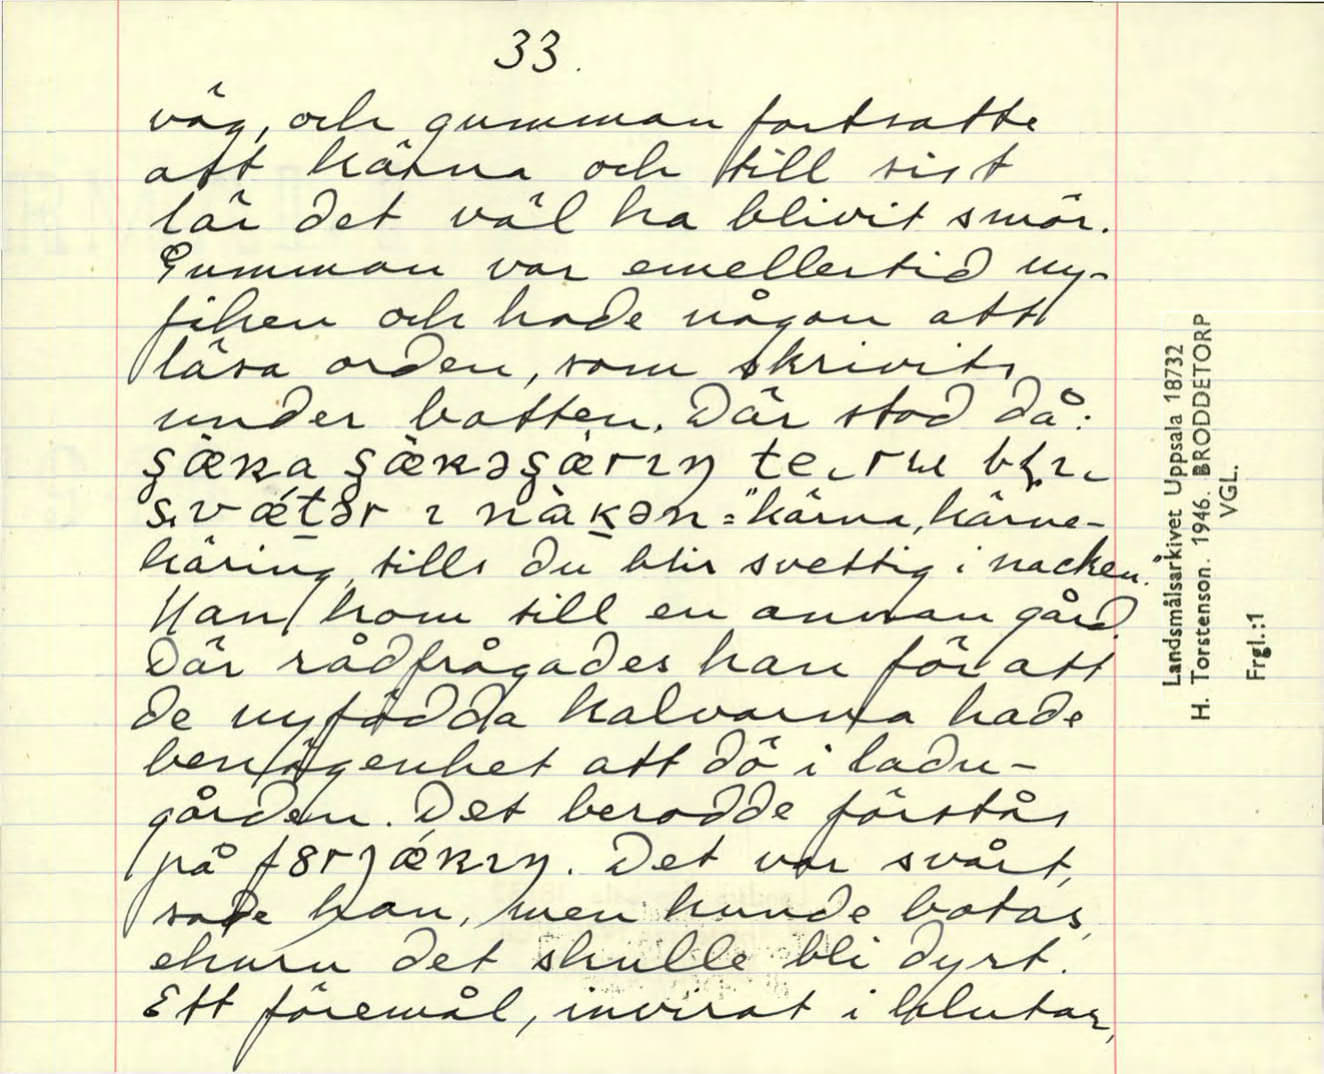 33.
väg, och gumman fortsatte
att kärna och till sist
lär det väl ha blivit smör.
Gumman var emellertid ny-
fiken och hade någon att
läsa orden, som skrivits
under botten. Där stod då:
= "kärna, kärne-
käring, tills du blir svettig i nacken."
Han kom till en annan gård.
Där rådfrågades han för att
de nyfödda kalvarna hade
benägenhet att dö i ladu-
gården. Det berodde förstås
på. Det var svårt,
sade han, men kunde botas,
ehuru det skulle bli dyrt.
Ett föremål, invirat i klutar,
Landsmålsarkivet Uppsala 18732
H. Torstenson. 1946. BRODDETORP
VGL.
Frgl.:1